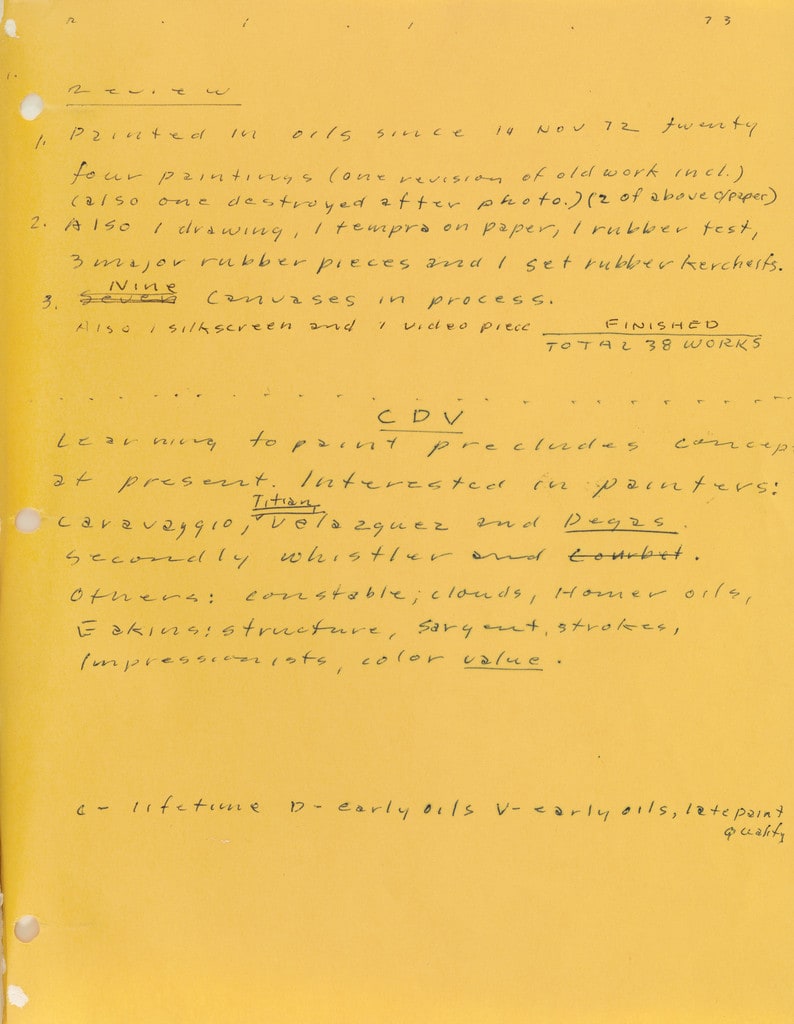 73
Review
1. Painted in oils since 14 Nov 72 twenty
four paintings (one revision of old work incl.)
(also one destroyed after photo.) (2 of above o/paper)
2. Also 1 drawing, 1 tempra on paper, 1 rubber test,
3 major rubber pieces and 1 set rubber kercheifs.
Nine
3. Seven Canvases in process.
Also 1 silkscreen and 1 video piece FINISHED
TOTAL 38 WORKS
CDV
Learning to paint precludes concep
at present. Interested in painters:
Titian,
Caravaggio, Velazquez and Degas.
Secondly Whistler and Courbet.
Others: Constable; clouds, Homer oils,
Eakins: structure, Sargent, strokes,
Impressionists, color value.
C- lifetime D- early oils V- early oils, late paint
quality